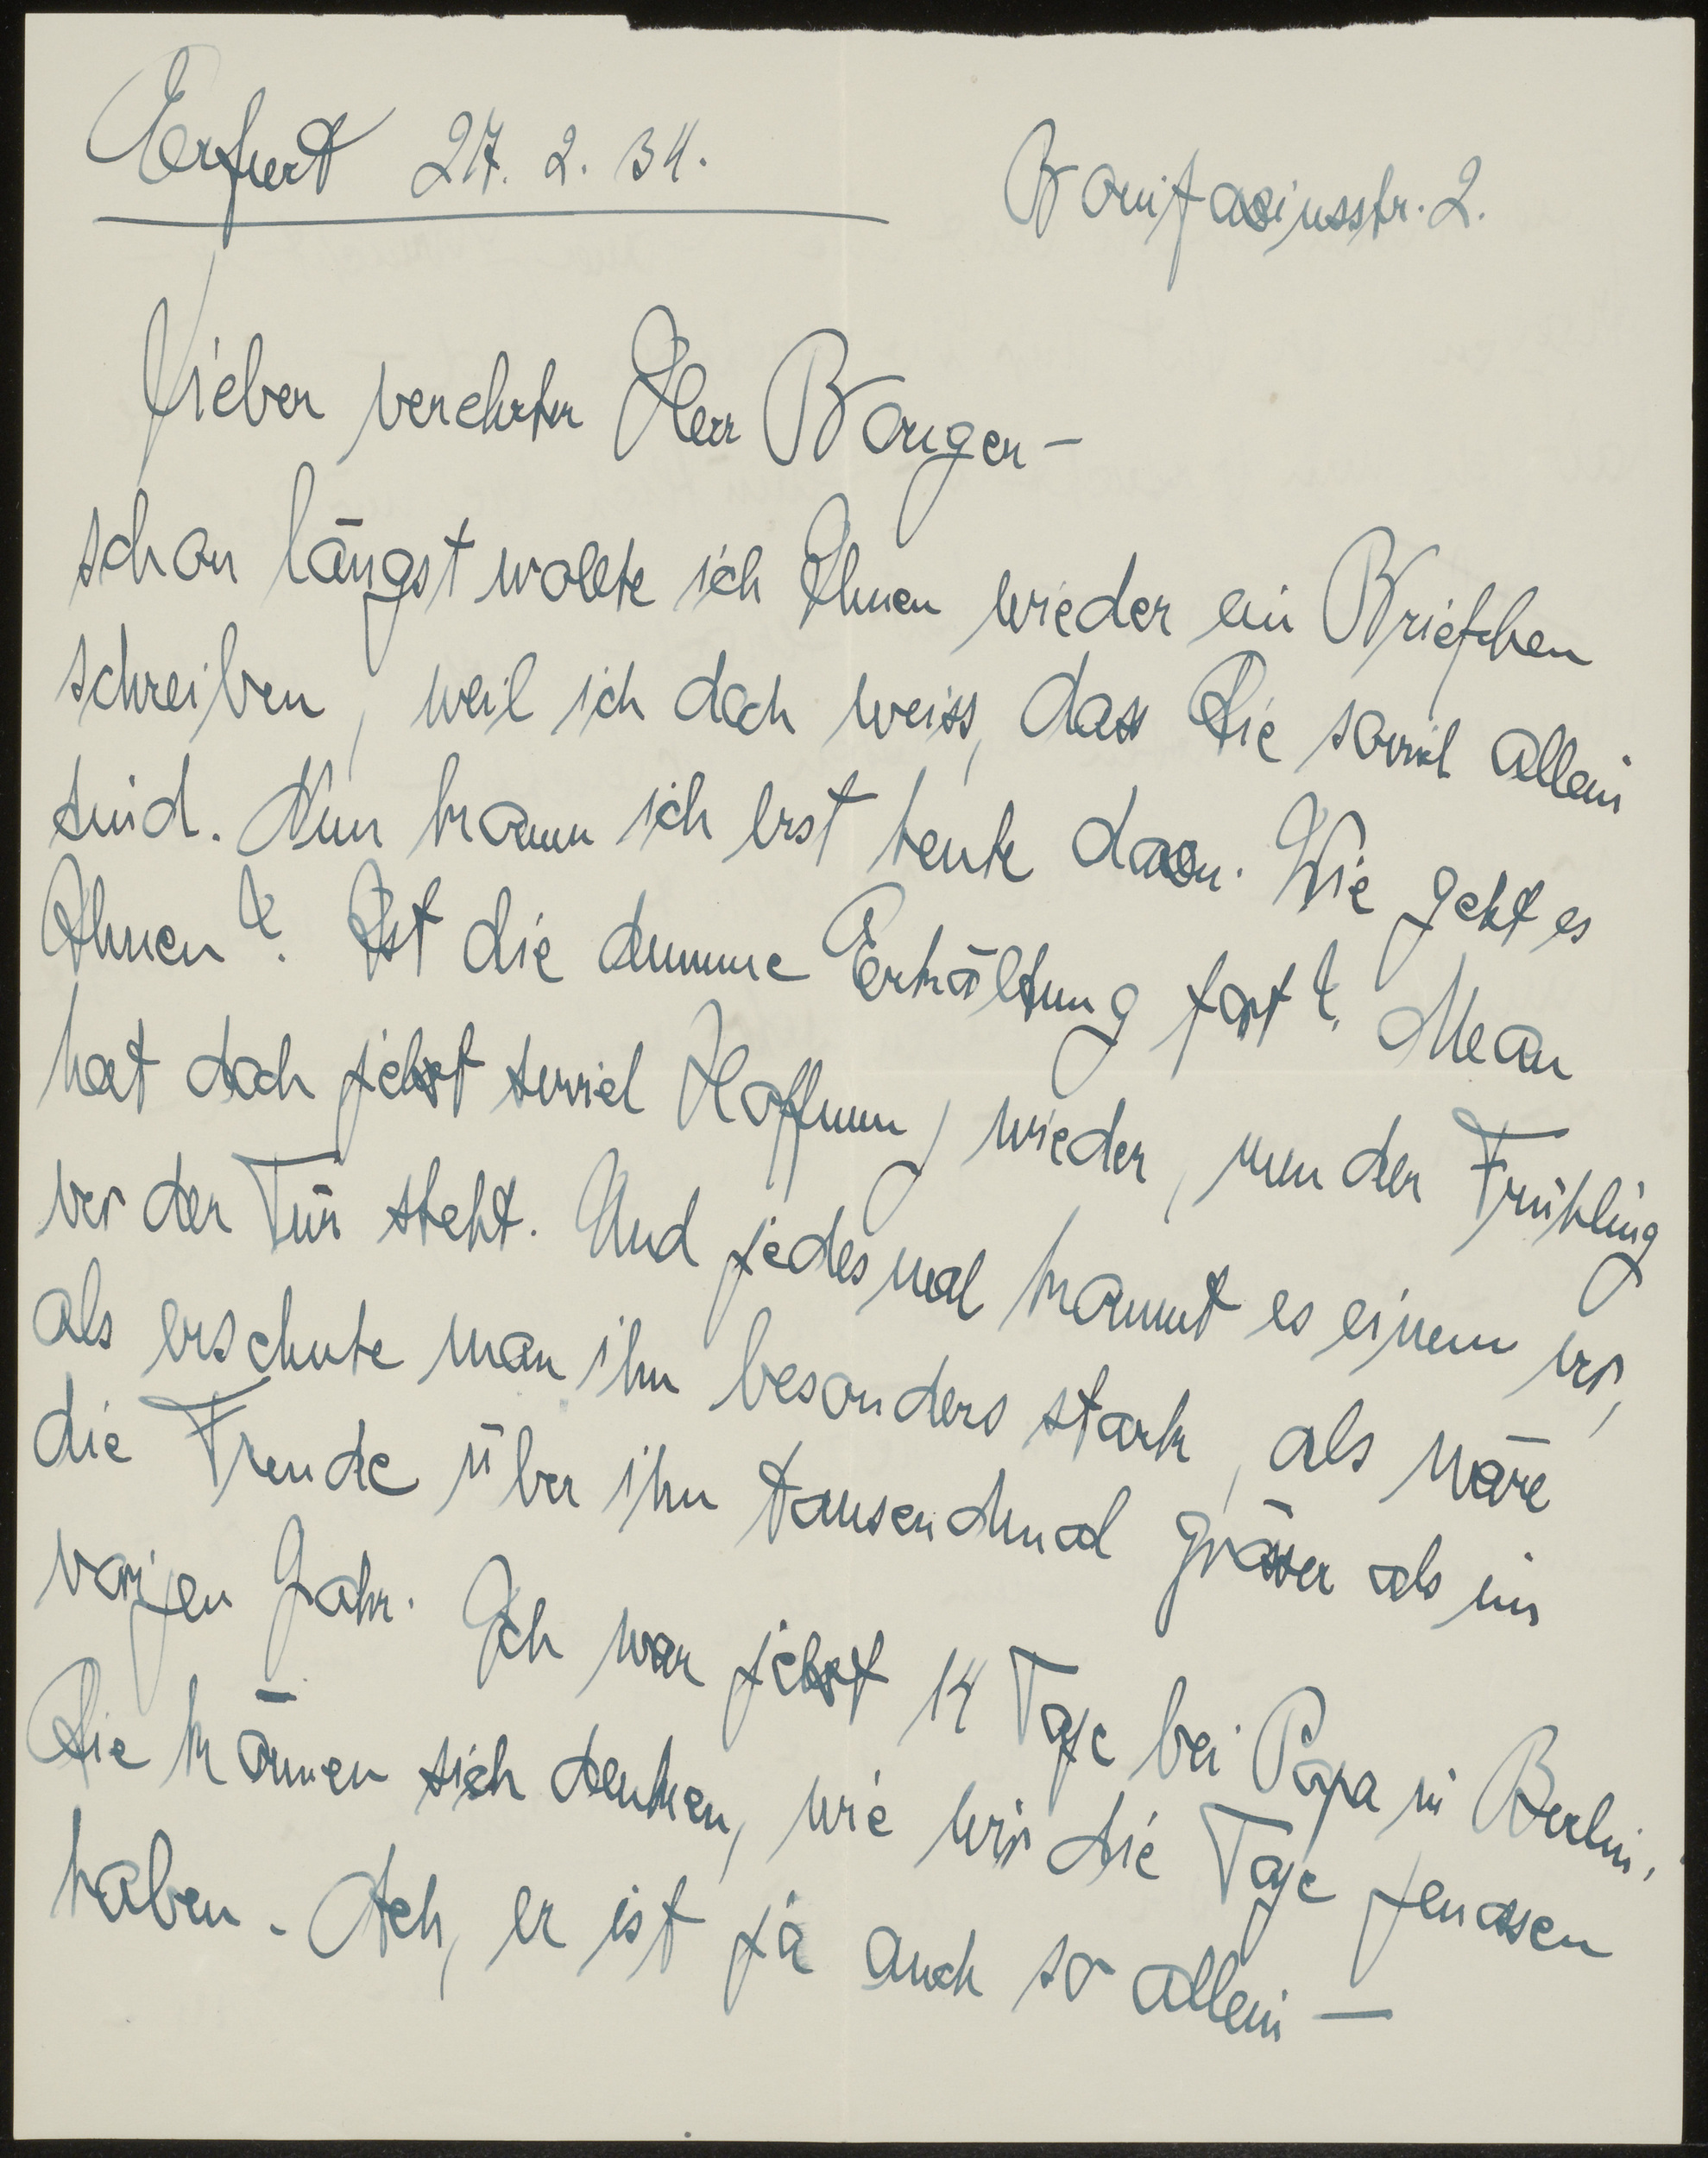 Erfurt 27. 2. 34.
Bonifaziusstr. 2.
Lieber verehrter Herr Bonger –
schon längst wollte ich Ihnen wieder ein Briefchen
schreiben, weil ich doch weiss, dass Sie soviel allein
sind. Nun komm ich erst heute dazu. Wie geht es
Ihnen? Ist die dumme Erkältung fort? Man
hat doch jetzt soviel Hoffnung wieder, nun der Frühling
vor der Tür steht. Und jedesmal kommt es einem vor,
als ersehnte man ihn besonders stark, als wäre
die Freude über ihn tausendmal grösser als im
vorigen Jahr. Ich war jetzt 14 Tage bei Papa in Berlin.
Sie können sich denken, wie wir die Tage genossen
haben. Ach, er ist ja auch so allein –